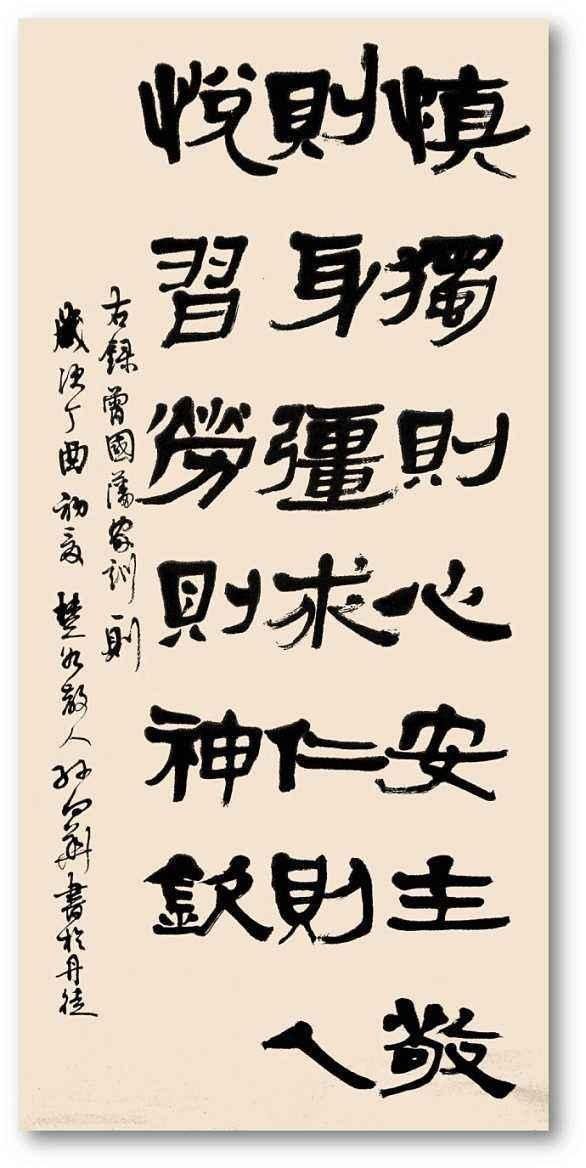 慎獨則心安主敬
則身彊求仁則人
悅習勞則神欽
右録曾國藩家訓一則
歲次丁酉初夏楚水散人孙向群書於丹徒